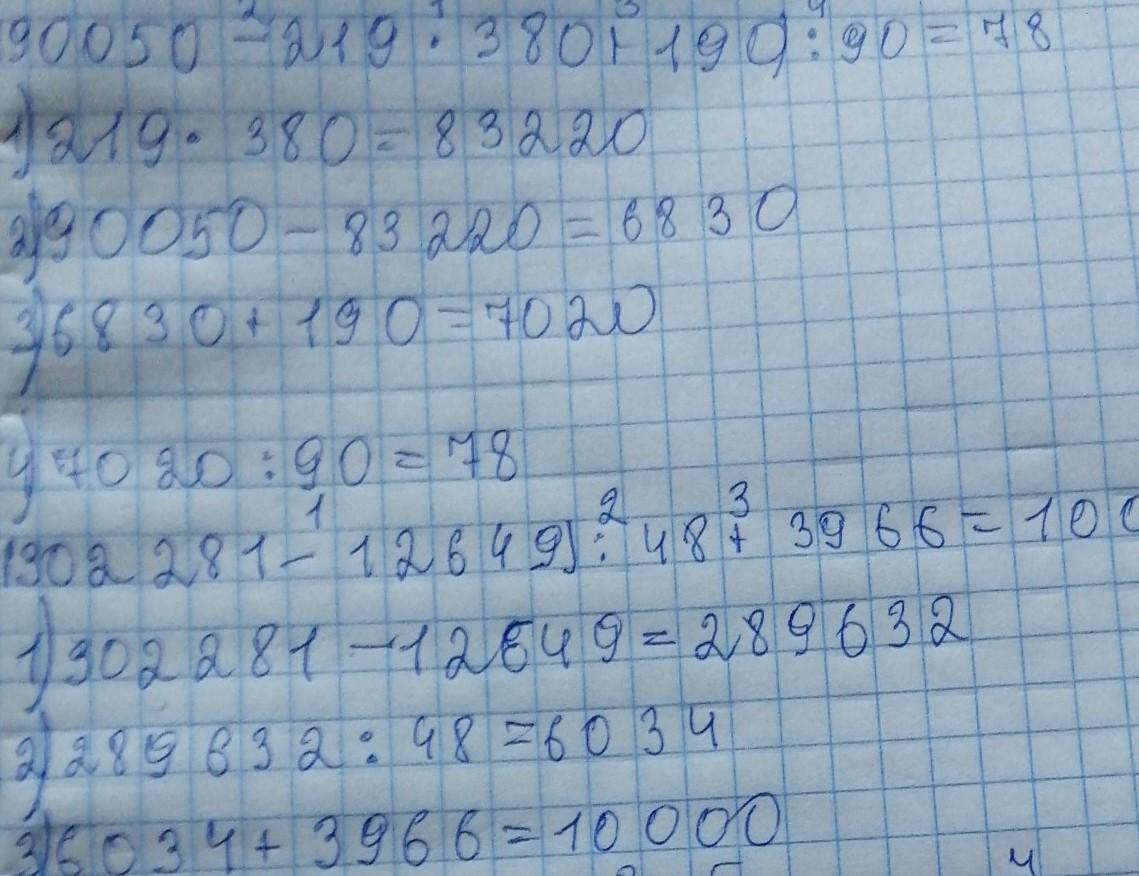 (90050 - 219 · 380 + 190) : 90 = 78
1) 219 · 380 = 83220
2) 90050 - 83220 = 6830
3) 6830 + 190 = 7020
4) 7020 : 90 = 78
(302281 - 12649) : 48 + 3966 = 100
1) 302281 - 12649 = 289632
2) 289632 : 48 = 6034
3) 6034 + 3966 = 10000
4